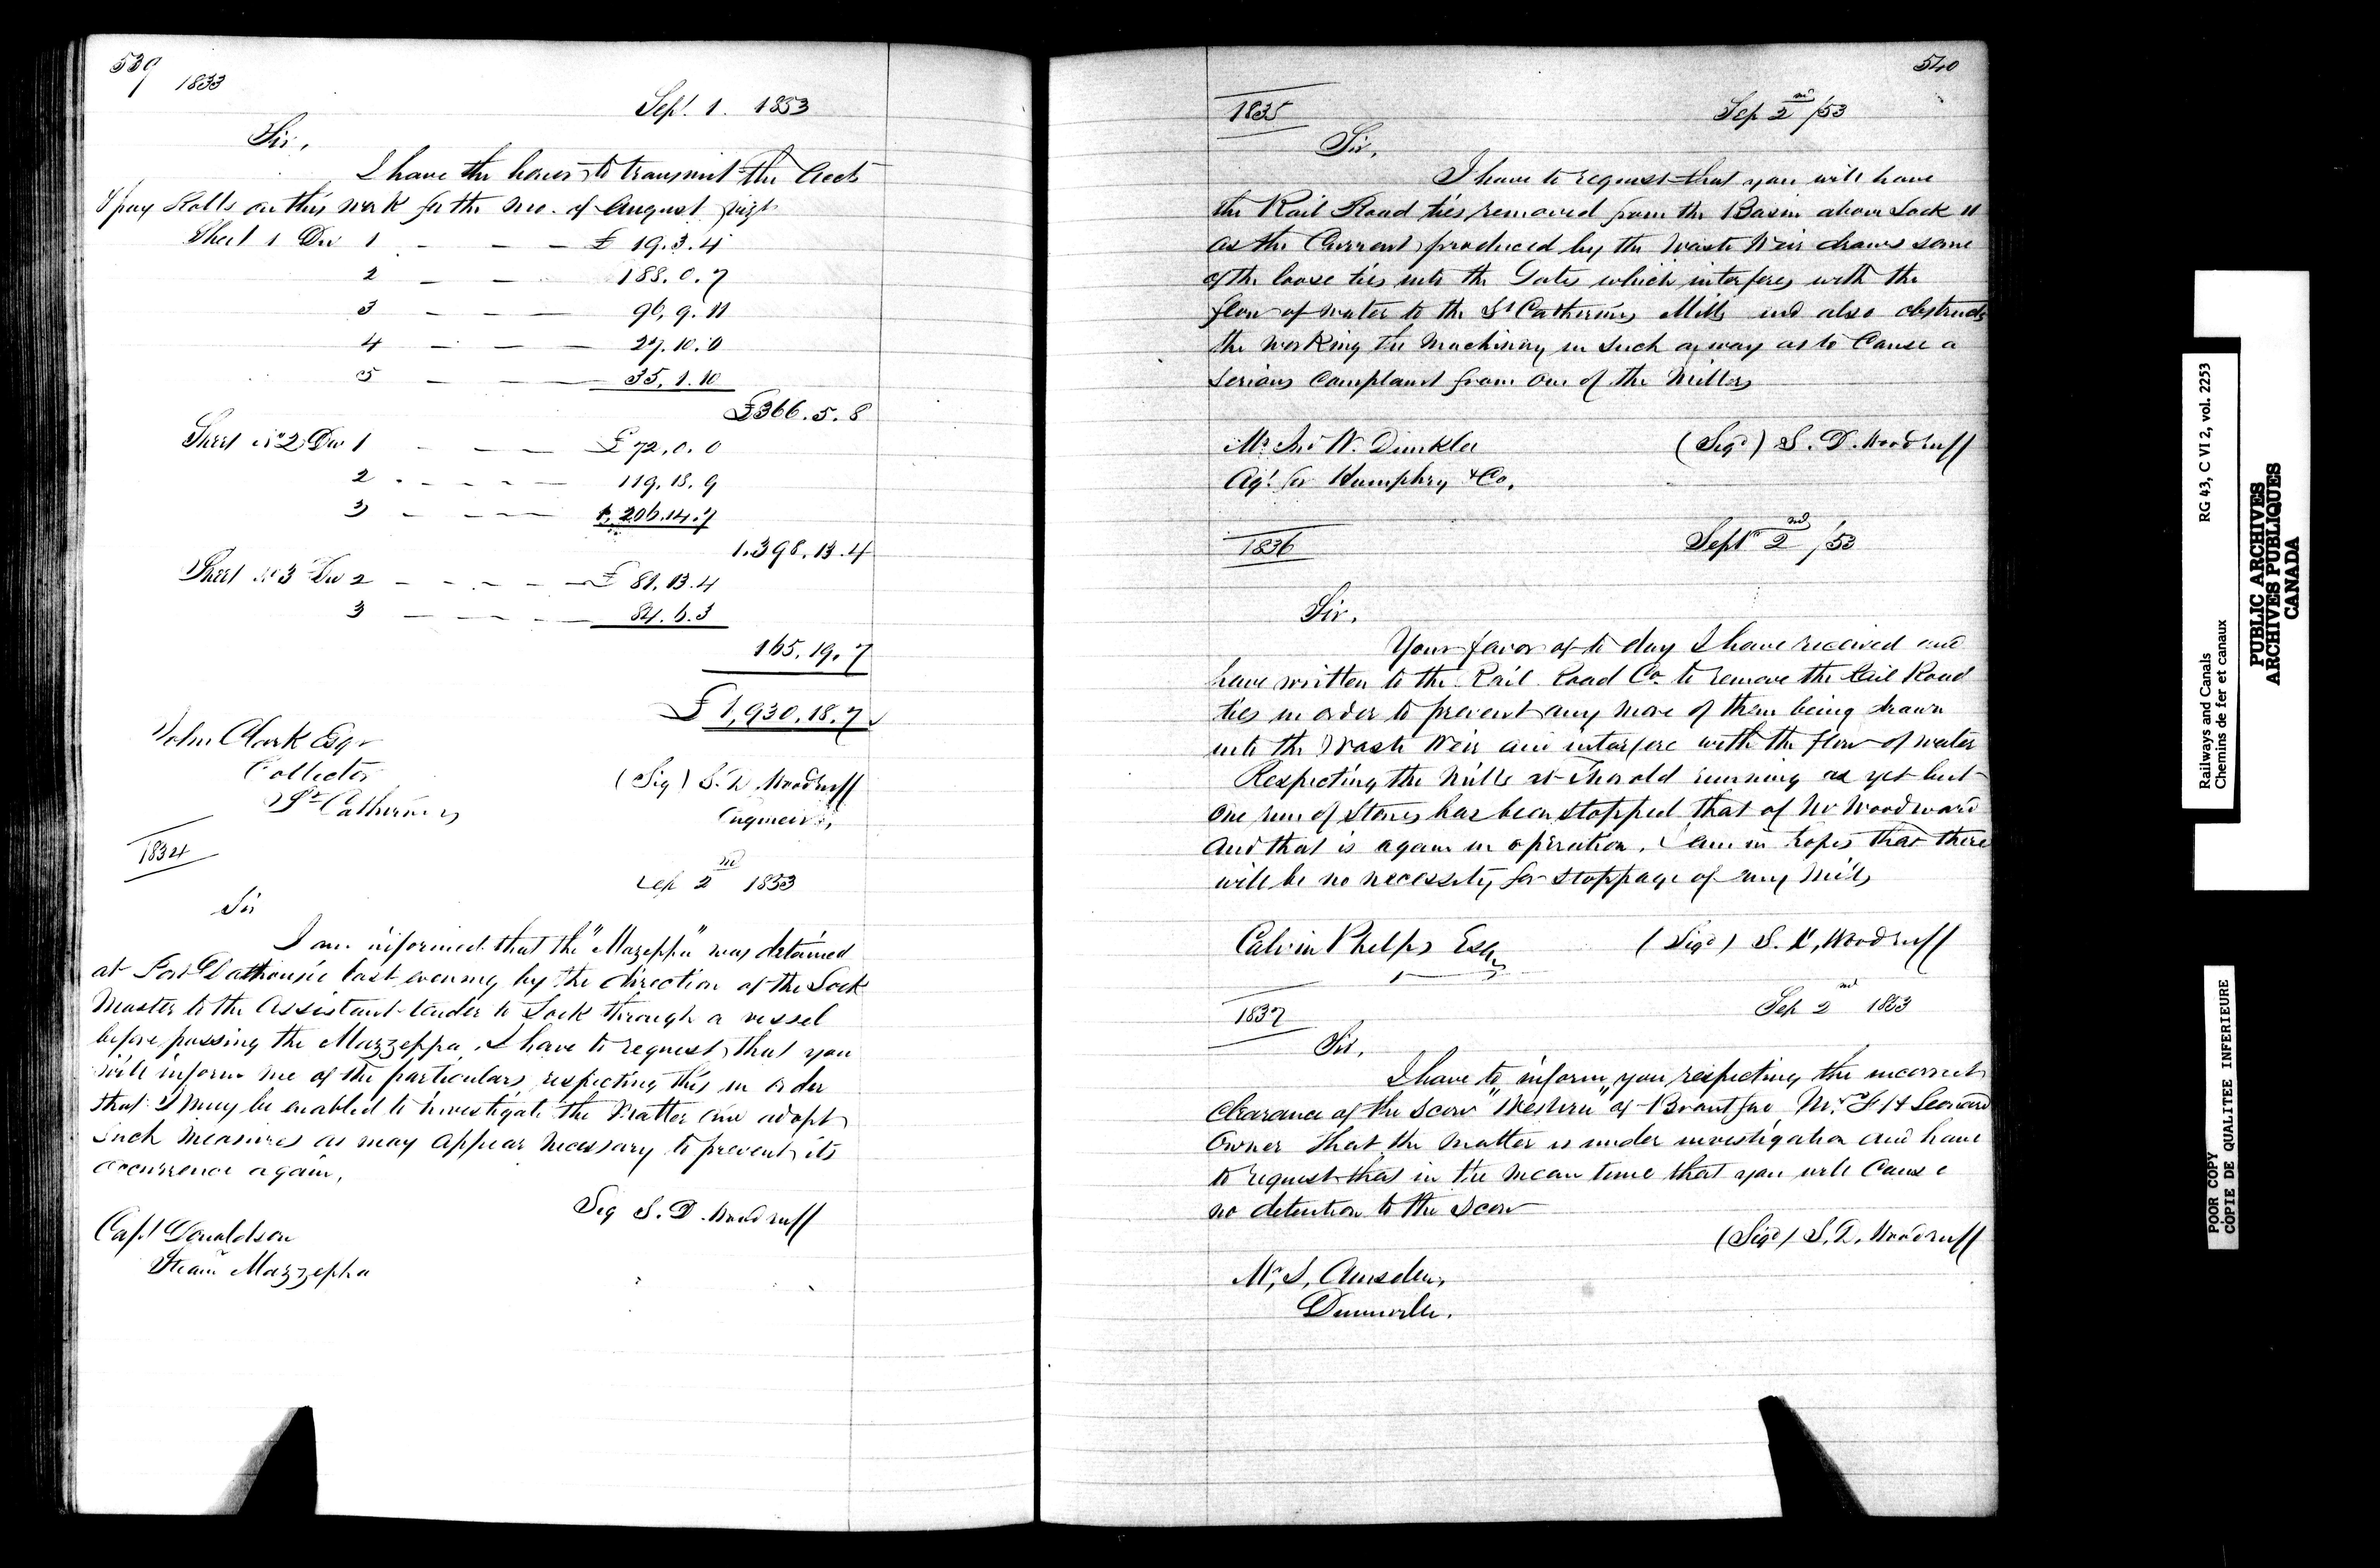 539
1833
Sept. 1. 1853
Sir,
I have the honor to transmit the Accts
& pay Rolls on this work for the mo. of August vizt
Sheet 1 Div 1 — — — £ 19.3.4
2 — — 188.0.7
3 — — — 96.9.11
4 — — — 27.10.0
5 — — — 35.1.10
£366.5.8
Sheet No 2 Div 1 — — — £ 72.0.0
2 - - - - 119.18.9
3 - - - - 1,206.14.7
1.398.13.4
Sheet No 3 Div 2 — — — £ 81.13.4
3 — — — 84.6.3
165.19.7
£ 1,930.18.7
John Clark Esqr
Collector
St Catherines
(Sig) S. D. Woodruff
Engineer,
1834
Sep 2nd 1853
Sir
I am informed that the "Mazeppa" was detained
at Port Dalhousie last evening by the direction of the Lock
Master to the Assistant tender to Lock through a vessel
before passing the Mazzeppa. I have to request that you
will inform me of the particulars respecting this in order
that I may be enabled to investigate the Matter and adopt
such measures as may appear necessary to prevent its
occurrence again.
Sig S. D. Woodruff
Capt Donaldson
Steamr Mazzeppa
540
1835
Sep 2nd /53
Sir,
I have to request that you will have
the Rail Road ties removed from the Basin above Lock 11
as the Current produced by the Waste Weir draws some
of the loose ties into the Gates which interferes with the
flow of water to the St Catherines Mills and also obstructs
the working the Machinery in such a way as to Cause a
serious complaint from one of the Millers
Mr Jno W. Dunklee
Agt for Humphry & Co.
(Sigd) S. D. Woodruff
1836
Sept 2nd /53
Sir,
Your favor of to day I have received and
have written to the Rail Road Co. to remove the Rail Road
ties in order to prevent any more of them being drawn
into the Waste Weir and interfere with the flow of water
Respecting the Mills at Thorold running as yet but
one run of Stones has been stopped that of Mr Woodward
and that is again in operation. I am in hopes that there
will be no necessity for stoppage of any Mills
Calvin Phelps Esq
(Sigd) S. D. Woodruff
1837
Sep 2nd 1853
Sir,
I have to inform you respecting the incorrect
Clearance of the Scow "Western" of Brantford Mr F H Leonard
Owner that the matter is under investigation and have
to request that in the mean time that you will Cause
no detention to the Scow
(Sigd) S. D. Woodruff
Mr. S. Amsden,
Dunnville.
Railways and Canals
Chemins de fer et canaux
RG 43, C VI 2, vol. 2253
PUBLIC ARCHIVES
ARCHIVES PUBLIQUES
CANADA
POOR COPY
COPIE DE QUALITEE INFERIEURE